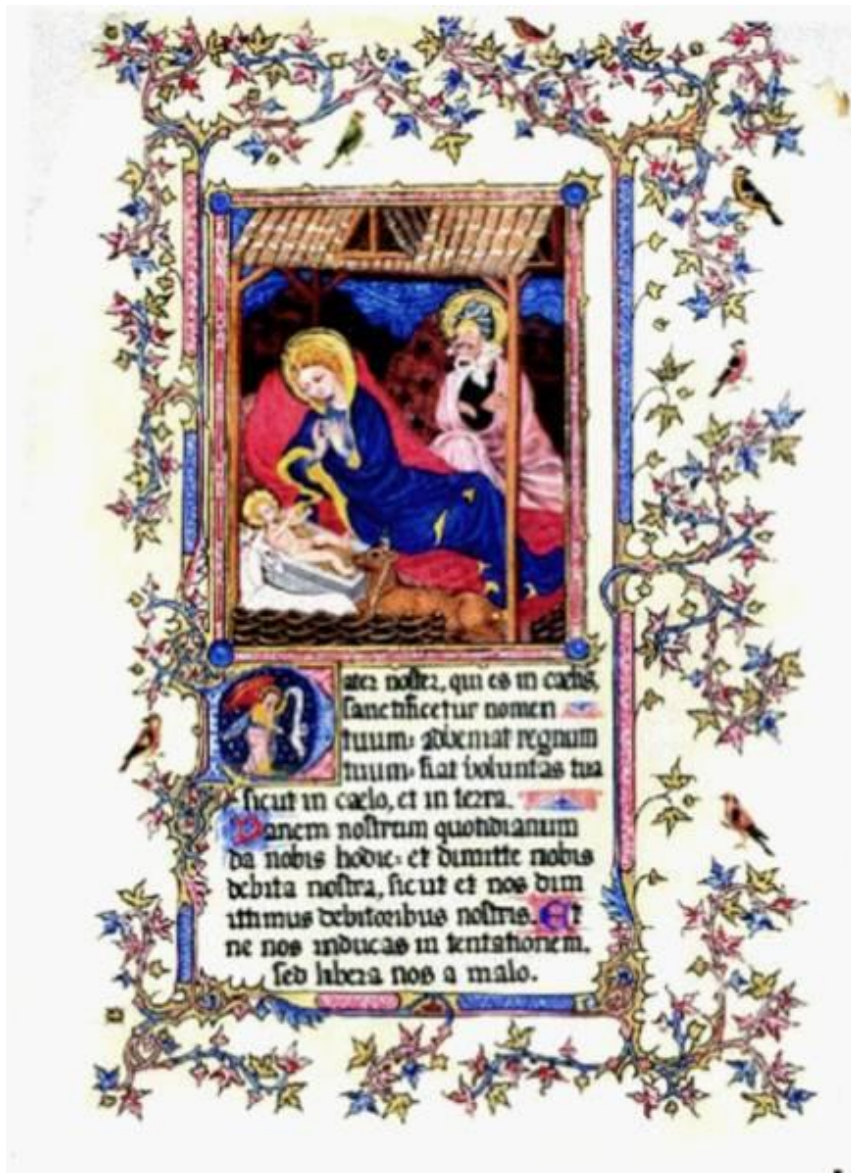 Pater noster, qui es in cælis,
sanctificetur nomen
tuum: adveniat regnum
tuum: fiat voluntas tua
sicut in cælo, et in terra.
Panem nostrum quotidianum
da nobis hodie: et dimitte nobis
debita nostra, sicut et nos dim
ittimus debitoribus nostris. Et
ne nos inducas in tentationem.
sed libera nos a malo.